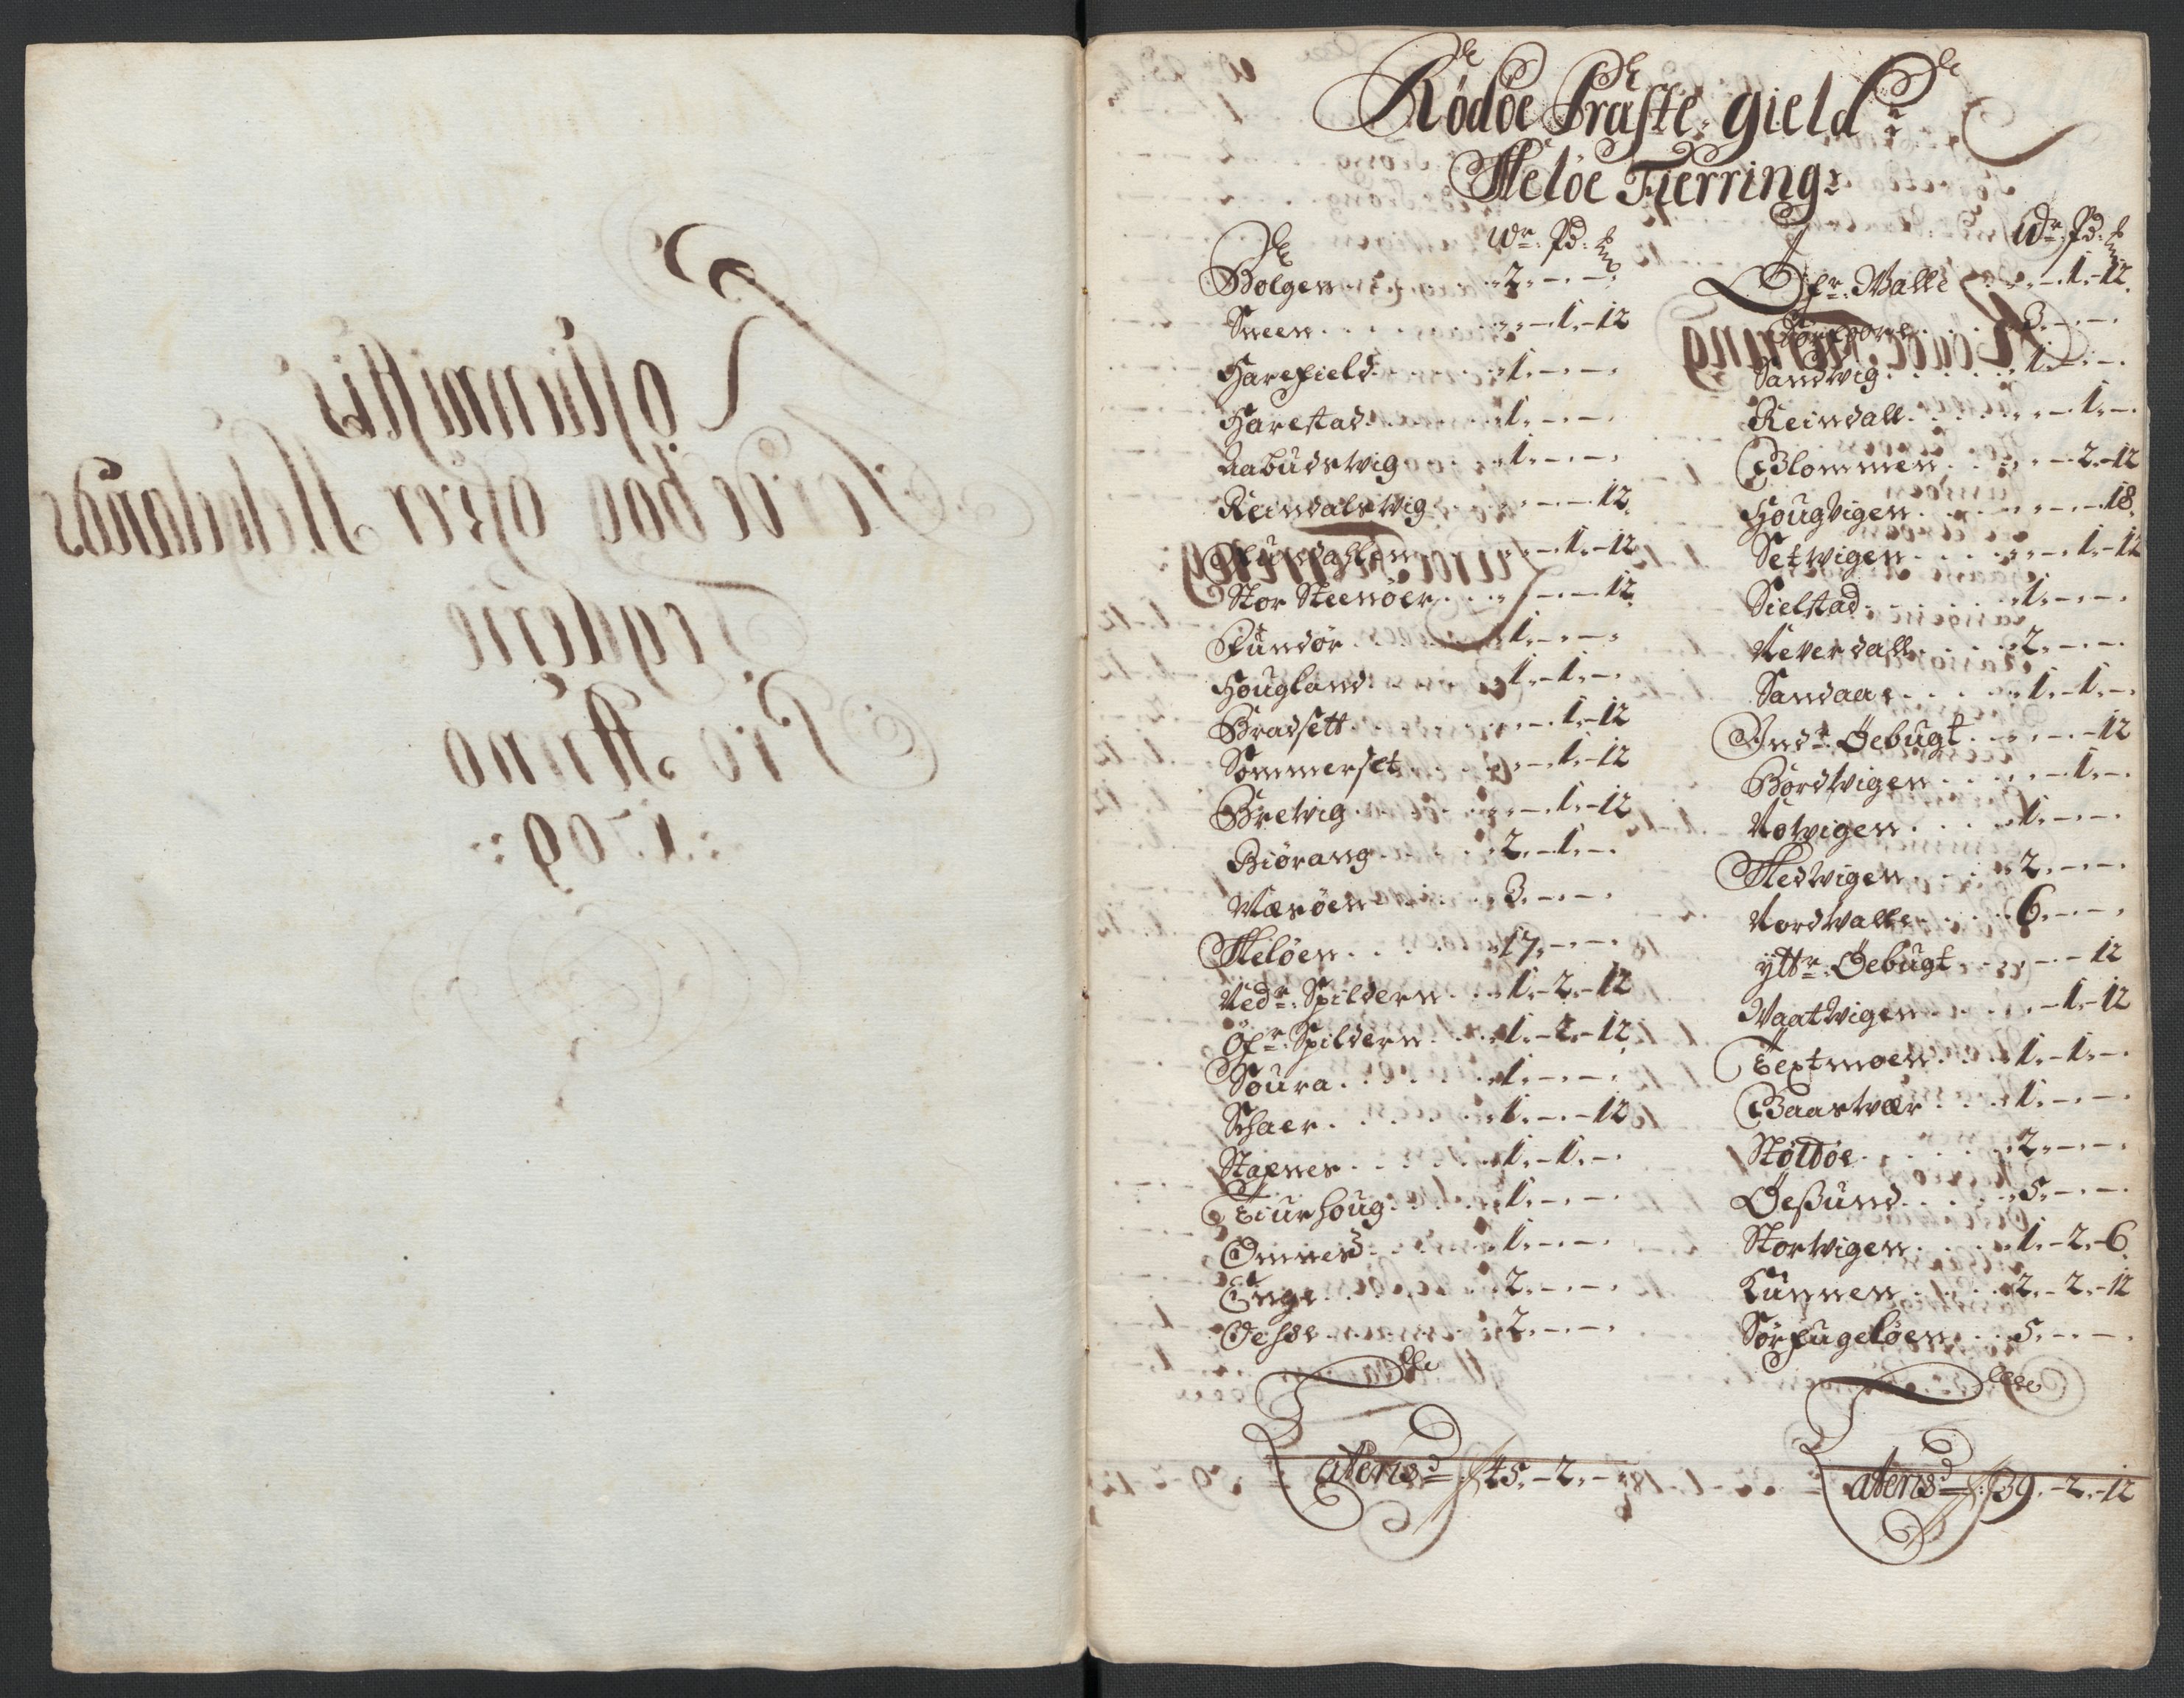 Rödöe Præste-gield:
Meløe Fierring:
Wr: Pd:
Bolgen . . . 2. - . - .
Sneen . . . - . - 1. - 12
Harefield . . . 1. - . - .
Harestad . . . 1. - . - .
Aabudswig . . . 1. - . - .
Reindalswig . . . - . - 12.
. . . - 1. - 12
Stor Steenöer . . . - . - 12.
Fundör . . . 1. - . - .
Hougland . . . 1. - 1. - .
Bradsett . . . - 1. - 12
Sommerset . . . - 1. - 12
Brewig . . . - 1. - 12
Biörang . . . 2. - 1. - .
Wærøen . . . 3. - . - .
Meløen . . . 17. - . - .
Nedr: Spildern . . . 1. - 2. - 12
Öfr: Spildern . . . 1. - 2. - 12
Soura . . . 1. - . - .
Schaer . . . 1. - . - 12
Stapnes . . . 1. - 1. - .
Tiurhoug . . . 1. - . - .
Omnes . . . 1. - . - .
Enge . . . 2. - . - .
Oesde . . . 2. - . - .
Lateris d 45. - 2. - .
Wr: Pd:
Öfr: Walle . . . - 1. - 12.
. . . 3. - . - .
Sandwig . . . 1. - . - .
Reindall . . . - 1. - .
Blommen . . . - 2. - 12
Hougvigen . . . - . - 18.
Setwigen . . . - 1. - 12
Sielstad . . . 1. - . - .
Neverdall . . . 2. - . - .
Sandaae . . . 1. - 1. - .
Indr: Öebugt . . . - . - 12
Bordwigen . . . - 1. - .
Notwigen . . . 1. - . - .
Medwigen . . . 2. - . - .
Nordwalle . . . 6. - . - .
yttr: Öebugt . . . - . - 12
Waatwigen . . . - 1. - 12
Textmoen . . . 1. - 1. - .
Baaswær . . . 1. - . - .
Støtöe . . . 2. - . - .
Öeßund . . . 5. - . - .
Storwigen . . . 1. - 2. - 6.
Kunnen . . . 2. - 2. - 12
Sörfugelöen . . . 5. - . - .
Lateris d 39. - 2. - 12